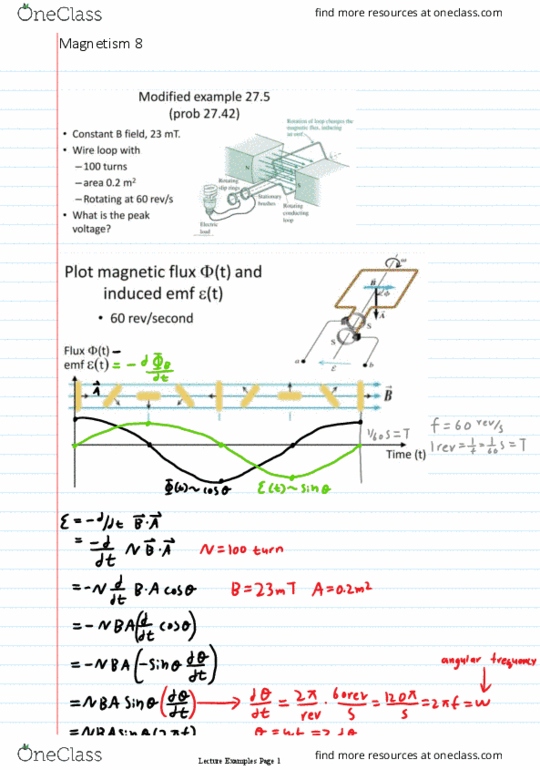 OneClass
find more resources at oneclass.com
Magnetism 8
Modified example 27.5
(prob 27.42)
• Constant B field, 23 mT.
• Wire loop with
–100 turns
–area 0.2 m²
–Rotating at 60 rev/s
• What is the peak
voltage?
Rotation of loop changes the
magnetic flux, inducing
an emf.
N
S
Rotating
slip rings
Stationary
brushes
Electric
load
Rotating
conducting
loop
Plot magnetic flux Φ(t) and
induced emf ε(t)
• 60 rev/second
ω
B
φ
A
S
S
a
b
ε
Flux Φ(t) –
emf ε(t) = -dΦ_B/dt
A
B
1/60 s = T
Time (t)
f = 60 rev/s
1 rev = 1/f = 1/60 s = T
Φ(t) ~ cos θ
ε(t) ~ sin θ
ε = -d/dt B⃗·A⃗
= -d/dt N B⃗·A⃗ N = 100 turn
= -N d/dt B·A cos θ B = 23mT A = 0.2m²
= -NBA(d/dt cos θ)
= -NBA(-Sin θ dθ/dt)
angular frequency
= NBA Sin θ (dθ/dt) → dθ/dt = 2π/rev · 60rev/s = 120π/s = 2πf = ω
= NBA sin θ (2πf)
OneClass
Lecture Examples Page 1
find more resources at oneclass.com